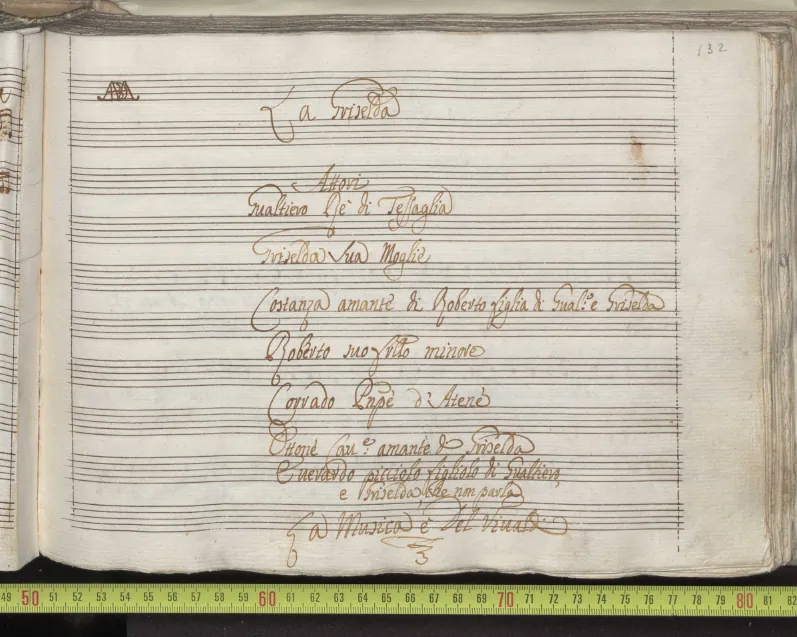 132
La Griselda
Attori
Gualtiero Rè di Tessaglia
Griselda sua Moglie
Costanza amante di Roberto figlia di Gual:º e Griselda
Roberto suo frĩto minore
Corrado Pnpe d'Atene
Ottone Cau:º amante di Griselda
Euerardo picciolo figliolo di Gualtiero,
e Griselda, che non parla
La Musica è Del Viualdi
49 50 51 52 53 54 55 56 57 58 59 60 61 62 63 64 65 66 67 68 69 70 71 72 73 74 75 76 77 78 79 80 81 82